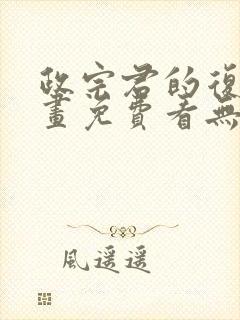 政宗君的復
畫免費看無
風遥遥